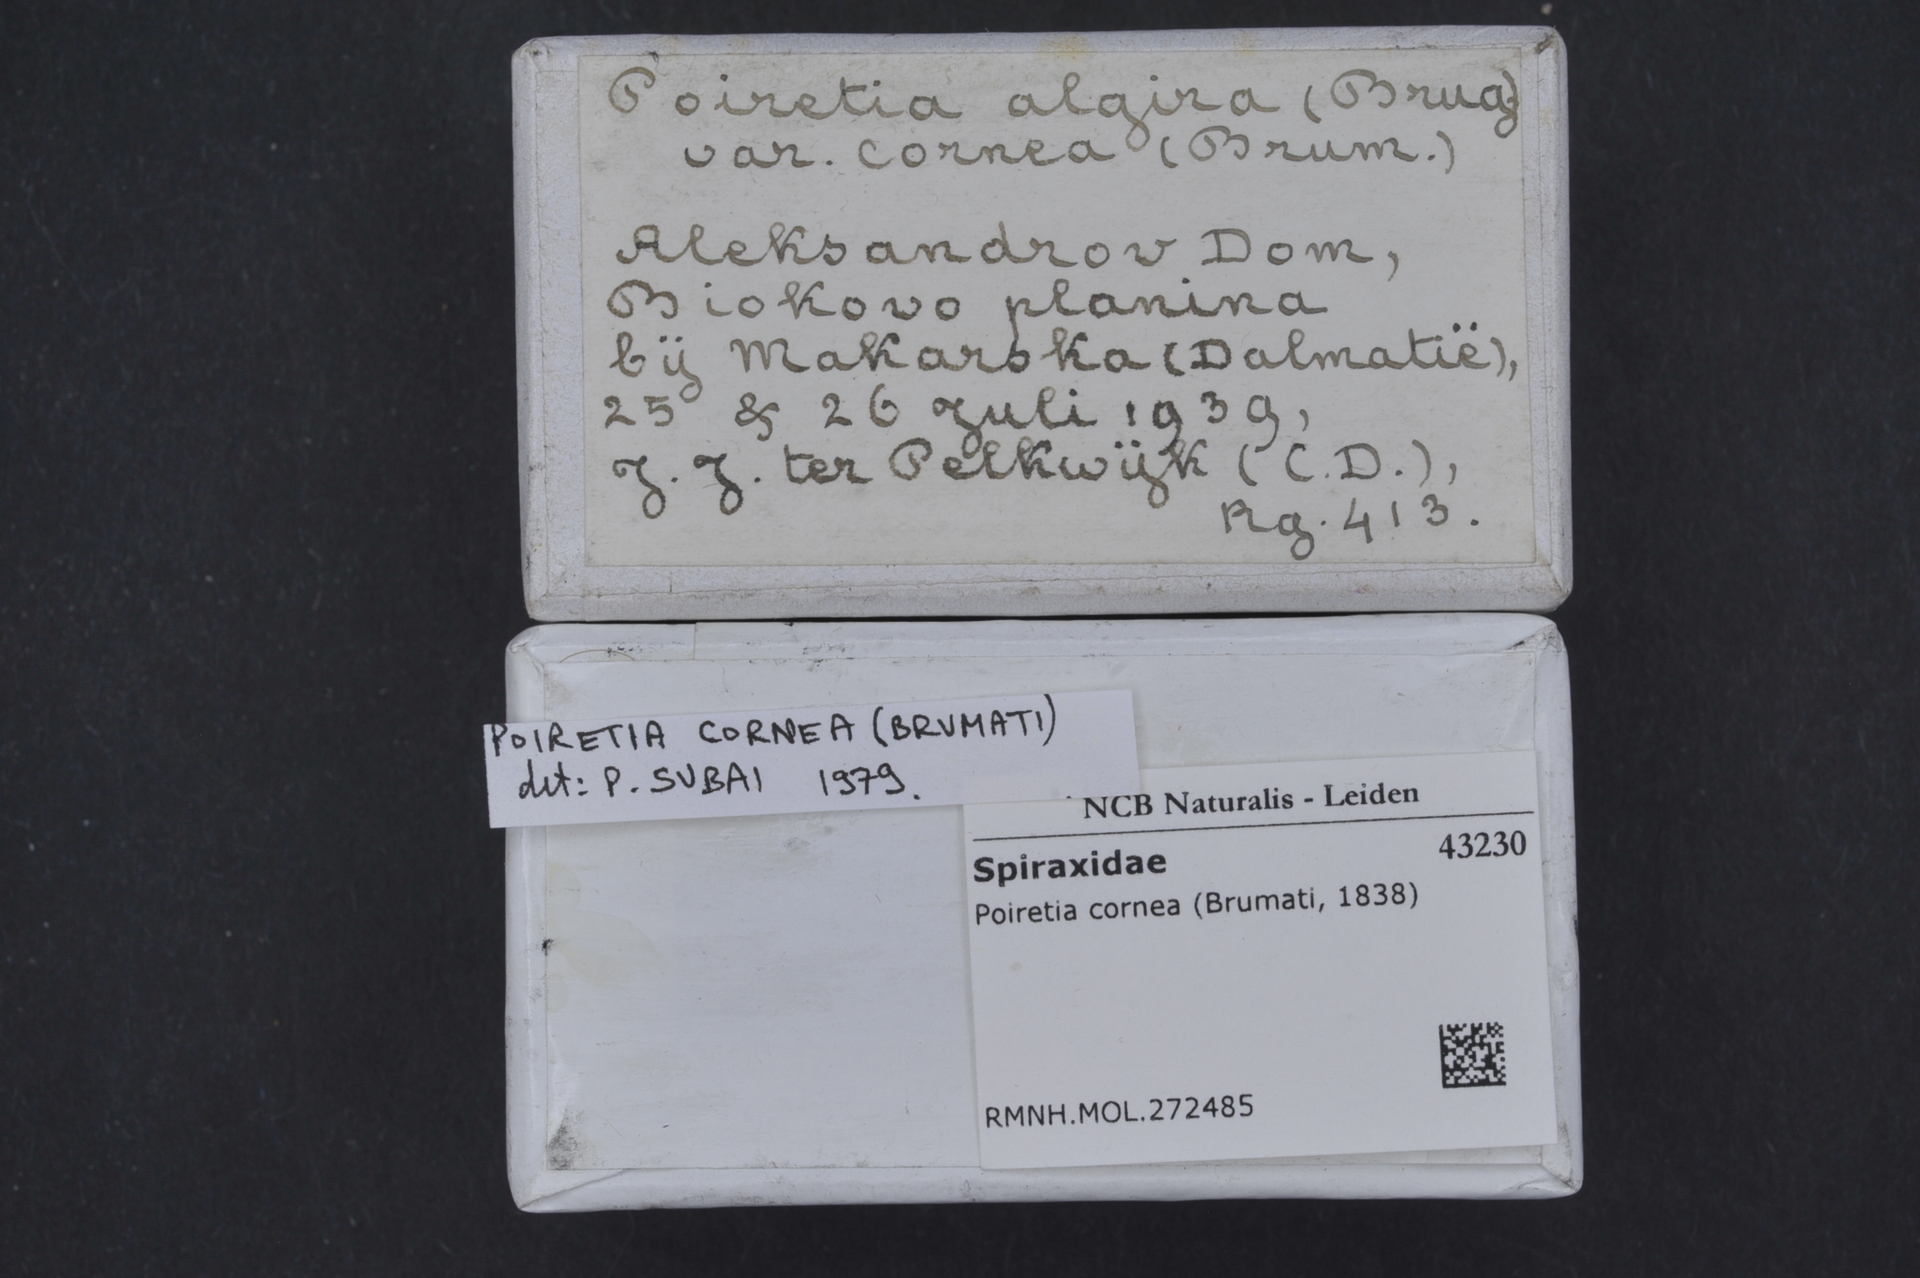 Poiretia algira (Brug)
var. cornea (Brum.)
Aleksandrov Dom,
Biokovo planina
bij Makarska (Dalmatië),
25 & 26 Juli 1939,
J. J. ter Pelkwijk (C.D.),
Rg. 413.
POIRETIA CORNEA (BRUMATI)
det: P. SUBAI 1979.
NCB Naturalis - Leiden
43230
Spiraxidae
Poiretia cornea (Brumati, 1838)
RMNH.MOL.272485